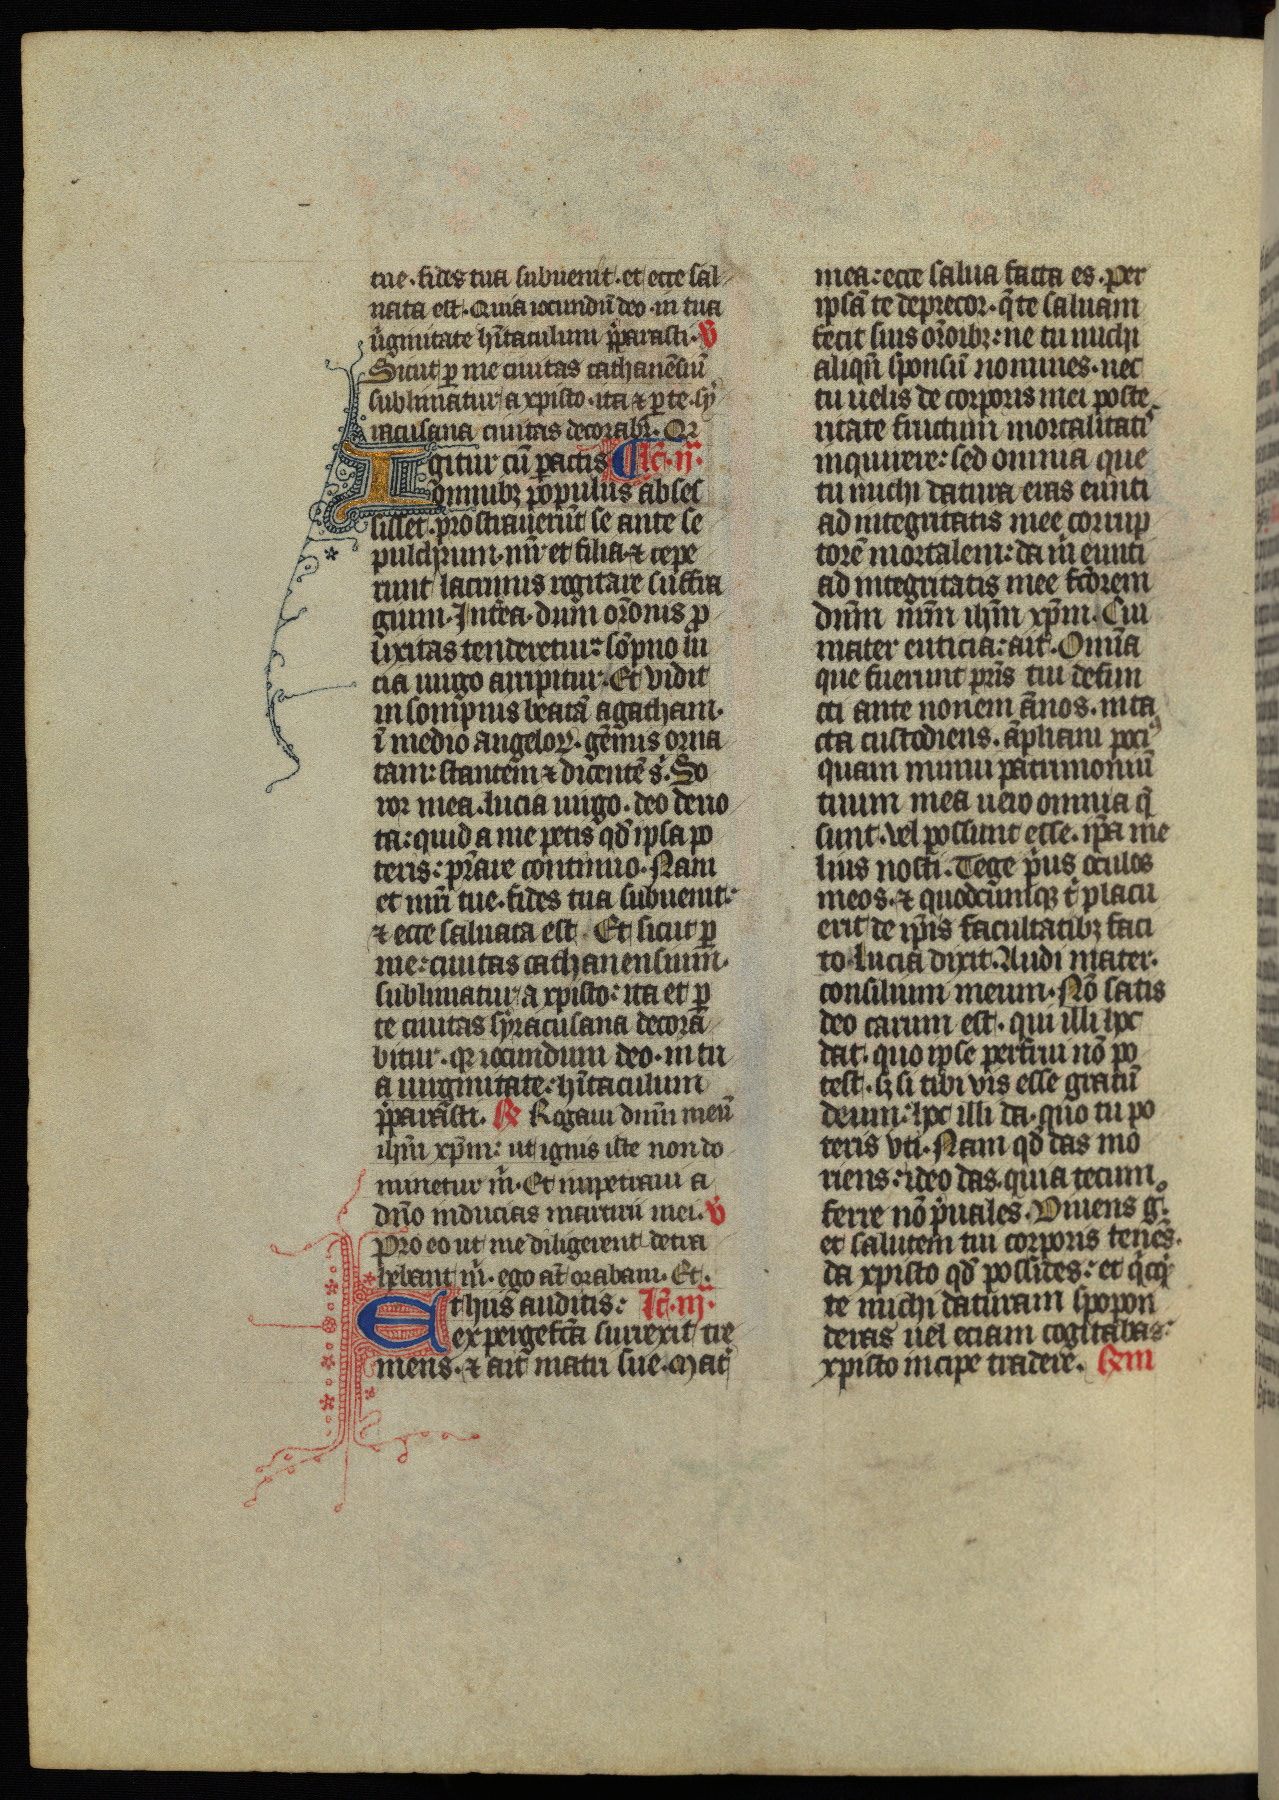 tue·fides tua subuenit·et ecce sal
uata est·Quia iocundū deo·in tua
ũginitate hĩtaculum p̃parasti·V̾
Sicut ꝑ me ciuitas cathanēsiū
sublimatur a xpisto·ita ⁊ ꝑ te·sy
racusana ciuitas decorabr̃·Qr
Igitur cū pactis lc̃·ij·
omnibꝫ populus absces
sisset·prostrauerūt se ante se
pulchrum·mr̃ et filia·⁊ cepe
runt lacrimis rogitare suffra
gium·Int̃ea·dum or̃onis p
lixitas tenderetur: sōpno lu
cia uirgo arripitur·Et vidit
in sompnis beatā agatham·
ī medio angeloꝝ·gēmis orna
tam: stantem ⁊ dicentē s̾·So
ror mea·lucia uirgo·deo deuo
ta: quid a me petis qd̾ ipsa po
teris: p̃stare continuo·Nam
et mr̃i tue·fides tua subuenit:
⁊ ecce saluata est·Et sicut ꝑ
me: ciuitas cathanensium·
sublimatur a xpisto: ita et ꝑ
te ciuitas syracusana decora
bitur·qr iocundum deo·in tu
a uirginitate: hĩtaculum
p̃parasti·R̷ Rogaui dnm̄ meū
ihm̄ xpm̄: ut ignis iste non do
minetur m̾·Et impetraui a
dño inducias martirii mei·V̾
Pro eo ut me diligerent detra
hebant m̾·ego at̾ orabam·Et·
Et hiis auditis: lc̃·iij·
expergefc̃a surrexit tre
mens·⁊ ait matri sue·Mat̾
mea: ecce salua facta es·per
ipsā te deprecor·q̃ te saluam
fecit suis or̃oibꝫ: ne tu michi
aliqn̄ sponsū nomines·nec
tu uelis de corporis mei poste
ritate fructum mortalitatis
inquirere: sed omnia que
tu michi datura eras eunti
ad integritatis mee corrup
torē mortalem: da m̾ eunti
ad integritatis mee fc̃orem
dnm̄ nr̃m ihm̄ xpm̄·Cui
mater euticia: ait·Omīa
que fuerunt pr̃is tui defun
cti ante nonem ānos·inta
cta custodiens·āpliaui poci⁹
quam minui patrimoniū
tuum mea uero omnia q̃
sunt·vel possunt esse·ip̃a me
lius nosti·Tege p̾us oculos
meos·⁊ quodcūmqꝫ t̾ placu
erit de ip̃is facultatibꝫ faci
to·Lucia dixit·Audi mater·
consilium meum·Nō satis
deo carum est·qui illi hoc
dat·quo ipse perfrui nō po
test·sꝫ si tibi vis esse gratū
deum: hoc illi da·quo tu po
teris vti·Nam qd̾ das mo
riens: ideo das·quia tecum
ferre nō p̾uales·Viuens g̊·
et salutem tui corporis tenēs·
da xpisto qd̾ possides: et q̾cq̾
te michi daturam spopon
deras uel eciam cogitabas:
xpisto incipe tradere·